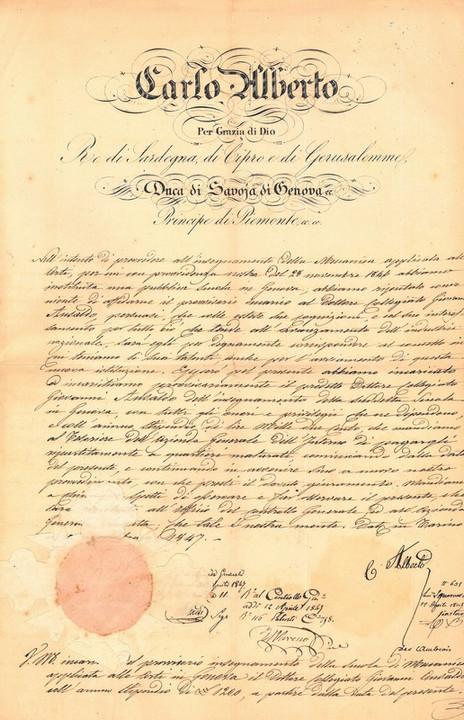 Carlo Alberto
Per Grazia di Dio
Re di Sardegna, di Cipro e di Gerusalemme,
Duca di Savoja di Genova ec.
Principe di Piemonte, ec. ec.
Nell'intento di provvedere all'insegnamento della Meccanica applicata alle
Arti, per cui con provvidenza nostra del 28 novembre 1846 abbiamo
instituita una pubblica Scuola in Genova, abbiamo riputato conve
niente di affidarne il provvisorio incarico al Dottore Collegiato Giovanni
Ansaldo, persuasi che colle estese sue cognizioni, e col suo interes
samento per tutto ciò che tende all'avanzamento dell'industria
nazionale, sarà egli per degnamente corrispondere al concetto in
cui teniamo li suoi talenti anche per l'avviamento di questa
nuova istituzione. Epperò pel presente abbiamo incaricato
ed incarichiamo provvisoriamente il predetto Dottore Collegiato
Giovanni Ansaldo dell'insegnamento della suddetta Scuola
in Genova, con tutti gli onori e privilegii che ne dipendono,
e coll'annuo stipendio di lire mille due cento, che mandiamo
al Tesoriere dell'Azienda Generale dell'Interno di pagargli
ripartitamente a quartieri maturati, cominciando dalla data
del presente, e continuando in avvenire sino a nuovo nostro
provvedimento, con che presti il dovuto giuramento. Mandiamo
a chi spetti di osservare e far osservare il presente, che
sarà all'Uffizio del Controllo Generale ed all'Azienda
Generale che tale è nostra mente. Dat. in Torino
1847.
C. Alberto
al Controllo Gen.
addì 12 Aprile 1847
Reg.
N. 116
Moreno
V. M. incarica del provvisorio insegnamento della Scuola di Meccanica
applicata alle Arti in Genova il Dottore Collegiato Giovanni Ansaldo
coll'annuo stipendio di L. 1200, a partire dalla data del presente.